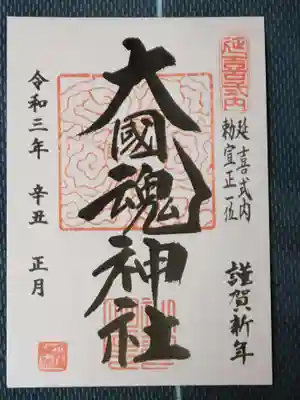 延喜式内
勅宣正一位
謹賀新年
大國魂神社
令和三年 辛丑 正月